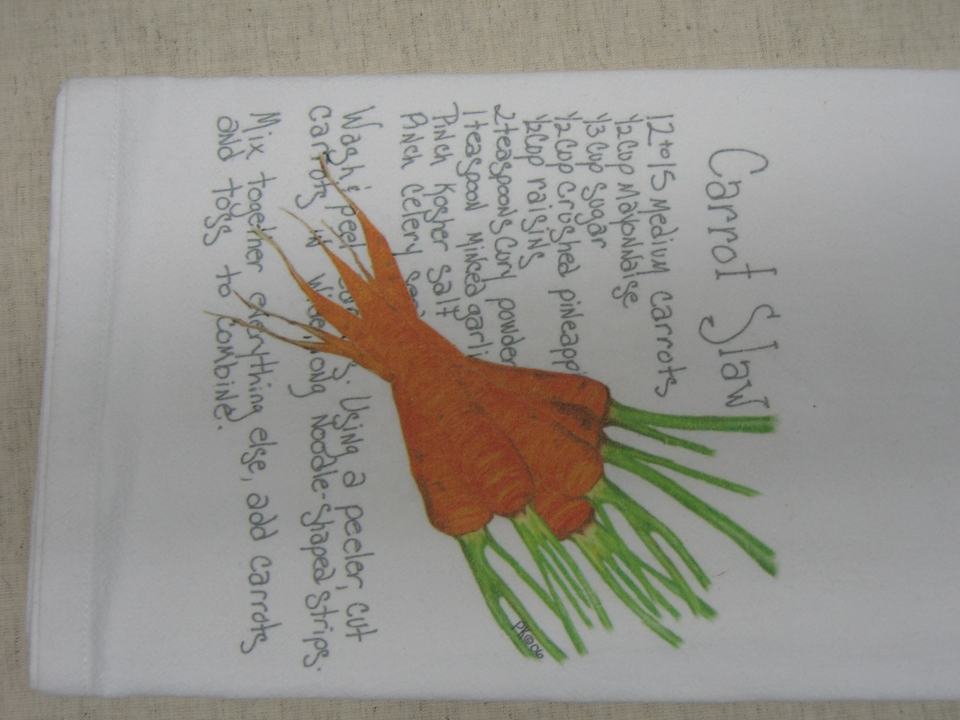 Carrot Slaw
12 to 15 Medium carrots
1/2 cup Mayonnaise
1/3 cup sugar
1/2 cup crushed pineapp
1/2 cup raisins
2 teaspoons Curry powder
1 teaspoon Minced garli
Pinch Kosher salt
Pinch Celery see
Wash & peel carrots. Using a peeler, cut
carrots in wide, long noodle-shaped strips.
Mix together everything else, add carrots
and toss to combine.